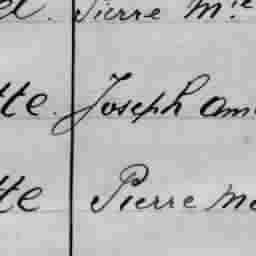 Pierre M.ie
tte. Joseph Am
tte Pierre Ma